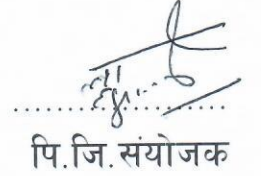 पि.जि.संयोजक